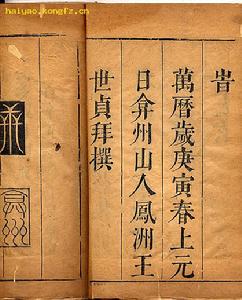 旹
萬曆歲庚寅春上元
日弇州山人鳳洲王
世貞拜撰
haiyao.kongfz.cn